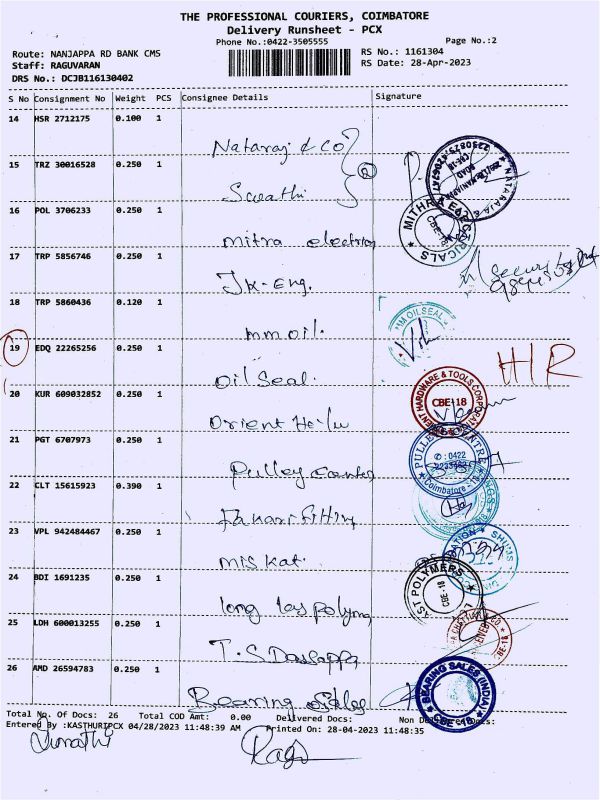 THE PROFESSIONAL COURIERS, COIMBATORE
Delivery Runsheet - PCX
Phone No.:0422-3505555 Page No.:2
Route: NANJAPPA RD BANK CMS RS No.: 1161304
Staff: RAGUVARAN RS Date: 28-Apr-2023
DRS No.: DCJB116130402
S No Consignment No Weight PCS Consignee Details Signature
14 HSR 2712175 0.100 1
Nataraj & CO
15 TRZ 30016528 0.250 1
Swathi
16 POL 3706233 0.250 1
mitra electrics
MITHRA ELECTRICALS CBE-18
17 TRP 5856746 0.250 1
JK-Eng. Security
18 TRP 5860436 0.120 1
mmoil. MM OIL SEAL
19 EDQ 22265256 0.250 1
Oil Seal. HIR
20 KUR 609032852 0.250 1
HARDWARE & TOOLS CORPORAT CBE-18
Orient
21 PGT 6707973 0.250 1
Pulley Center
PULLEY CENTRE ✆ : 0422 Coimbatore - 18
22 CLT 15615923 0.390 1
23 VPL 942484467 0.250 1
mis kat.
24 BDI 1691235 0.250 1
long las polyma
AST POLYMERS CBE-18
25 LDH 600013255 0.250 1
T.S
26 AMD 26594783 0.250 1
Bearing Sales
BEARING SALES (INDIA) CBE-18
Total No. Of Docs: 26 Total COD Amt: 0.00 Delivered Docs: Non
Entered By :KASTHURIPCX 04/28/2023 11:48:39 AM Printed On: 28-04-2023 11:48:35